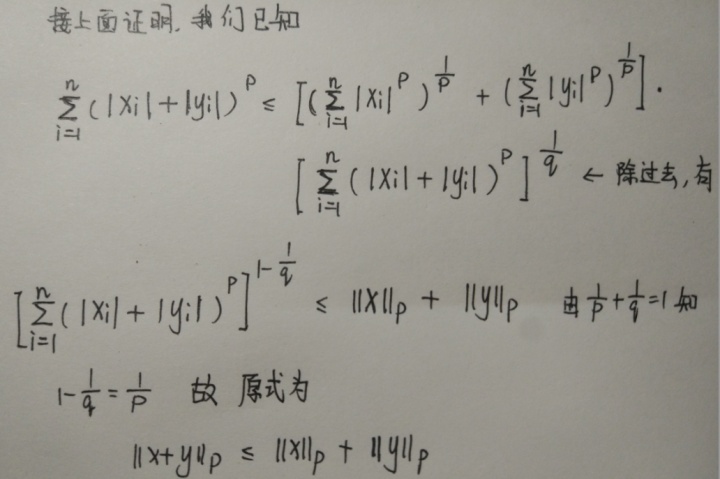 接上面证明,我们已知
$\sum_{i=1}^{n}(|x_i|+|y_i|)^p \leq [(\sum_{i=1}^{n}|x_i|^p)^{\frac{1}{p}}+(\sum_{i=1}^{n}|y_i|^p)^{\frac{1}{p}}]\cdot$
$[\sum_{i=1}^{n}(|x_i|+|y_i|)^p]^{\frac{1}{q}}$ ← 除过去,有
$[\sum_{i=1}^{n}(|x_i|+|y_i|)^p]^{1-\frac{1}{q}} \leq \|x\|_p + \|y\|_p$ 由 $\frac{1}{p}+\frac{1}{q}=1$ 知
$1-\frac{1}{q}=\frac{1}{p}$ 故 原式为
$\|x+y\|_p \leq \|x\|_p + \|y\|_p$